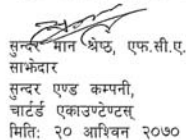 सुन्दर मान श्रेष्ठ, एफ.सी.ए.
साझेदार
सुन्दर एण्ड कम्पनी,
चार्टर्ड एकाउण्टेण्टस्
मितिः २० आश्विन २०७०